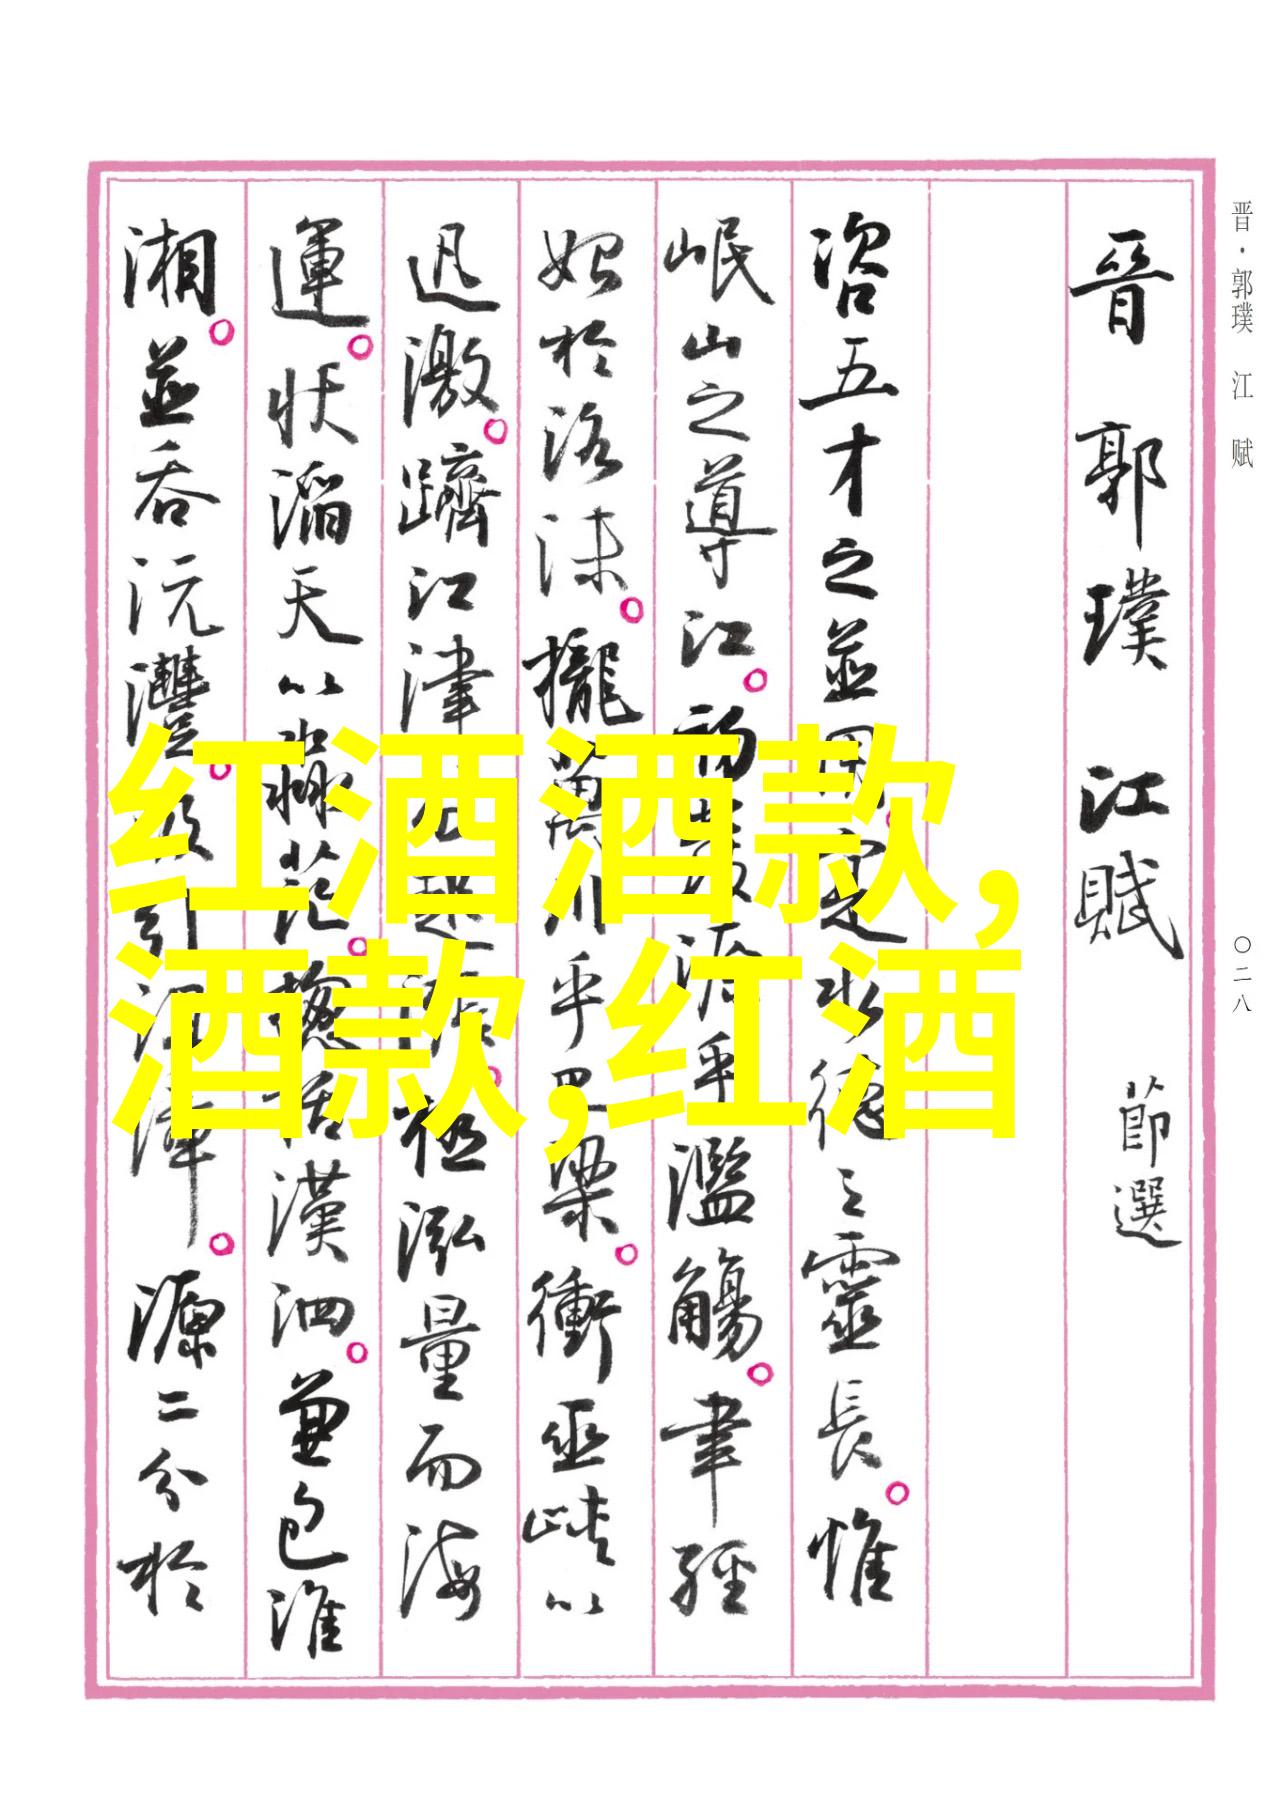 晋·郭璞 江赋
〇二八
晉郭璞江賦 節選
咨五才之並用。寔水德之靈長。惟
岷山之導江。初發源乎濫觴。聿經
始於洛沬。攏萬川乎巴梁。衝巫峽以
迅激。躋江津而起漲。極泓量而海
運。狀滔天以淼茫。總括漢泗。兼包淮
湘。並吞沅澧。汲引沮漳。源二分於
红酒酒款,
酒款,红酒